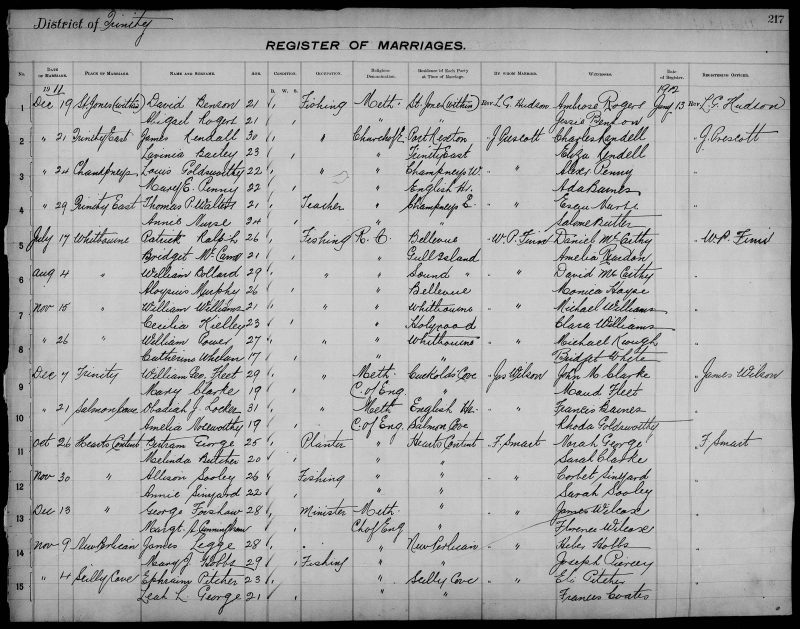 217
District of Trinity
REGISTER OF MARRIAGES.
No. DATE OF MARRIAGE. PLACE OF MARRIAGE. NAME AND SURNAME. AGE. CONDITION. OCCUPATION. Religious Denomination. Residence of Each Party at Time of Marriage. BY WHOM MARRIED. WITNESSES. Date of Register. REGISTERING OFFICER.
1911 B. W. S. 1912
1 Dec 19 St Jones (within) David Benson 21 Fishing Meth. St Jones (within) Rev L G Hudson Ambrose Rogers Jany 13 Rev L. G. Hudson
Abigael Rogers 21 " " Jessie Benson
2 " 21 Trinity East James Kendall 30 " Church of E. Port Rexton J Prescott Charles Rendell " J. Prescott
Lavinia Bailey 23 " Trinity East Eliza Rendell
3 " 24 Champneys Louis Goldsworthy 22 " " Champneys W. " " Alex Penny "
Mary E. Penny 22 " English Hr. Ada Barnes
4 " 29 Trinity East Thomas P. 21 Teacher " Champneys E " "
Annie Nurse 24 " Salome Butler
5 July 17 Whitbourne Patrick Ralph 26 Fishing R. C. Bellevue W. P. Finn Daniel McCarthy " W. P. Finn
Bridget 21 " Gull Island Amelia Reardon
6 Aug 4 " William Bollard 29 " " Sound " " " David McCarthy "
Aloysius Murphy 26 " Bellevue Monica Hayse
7 Nov 15 " William Williams 21 " " Whitbourne " " Michael Williams "
Cecilia Kielley 23 " Holyrood Clara Williams
8 " 26 " William Power 27 " " Whitbourne " " Michael Keough "
Catherine Whelan 17 " " Bridget White
9 Dec 7 Trinity William Geo. Fleet 29 " Meth. Cuckolds Cove Jas Wilson John M. Clarke " James Wilson
Mary Clarke 19 C. of Eng. " Maud Fleet
10 " 21 Salmon Cove Obadiah J. Locker 31 " Meth English Hr. " " Francis Barnes "
Amelia 19 C. of Eng. Salmon Cove Rhoda Goldsworthy
11 Oct 26 Hearts Content Bertram George 25 Planter " Hearts Content F. Smart Norah George " F Smart
Melinda Butcher 20 " " Sarah Clarke
12 Nov 30 " Allison Sooley 26 Fishing " " " " Corbet Sinyard "
Annie Sinyard 22 " " Sarah Sooley
13 Dec 13 " George Forshaw 28 Minister Meth. " " " James Wilcox "
Margt. A Cunningham Ch of Eng " Florence Wilcox
14 Nov 9 New Perlican James Legge 28 " " New Perlican " " Heber Hobbs "
Mary J Hobbs 29 Fishing " " Joseph Piercey
15 " 4 Scilly Cove Ephraim Pitcher 23 " Scilly Cove " " Eli Pitcher "
Leah L. George 21 " " Francis Coates